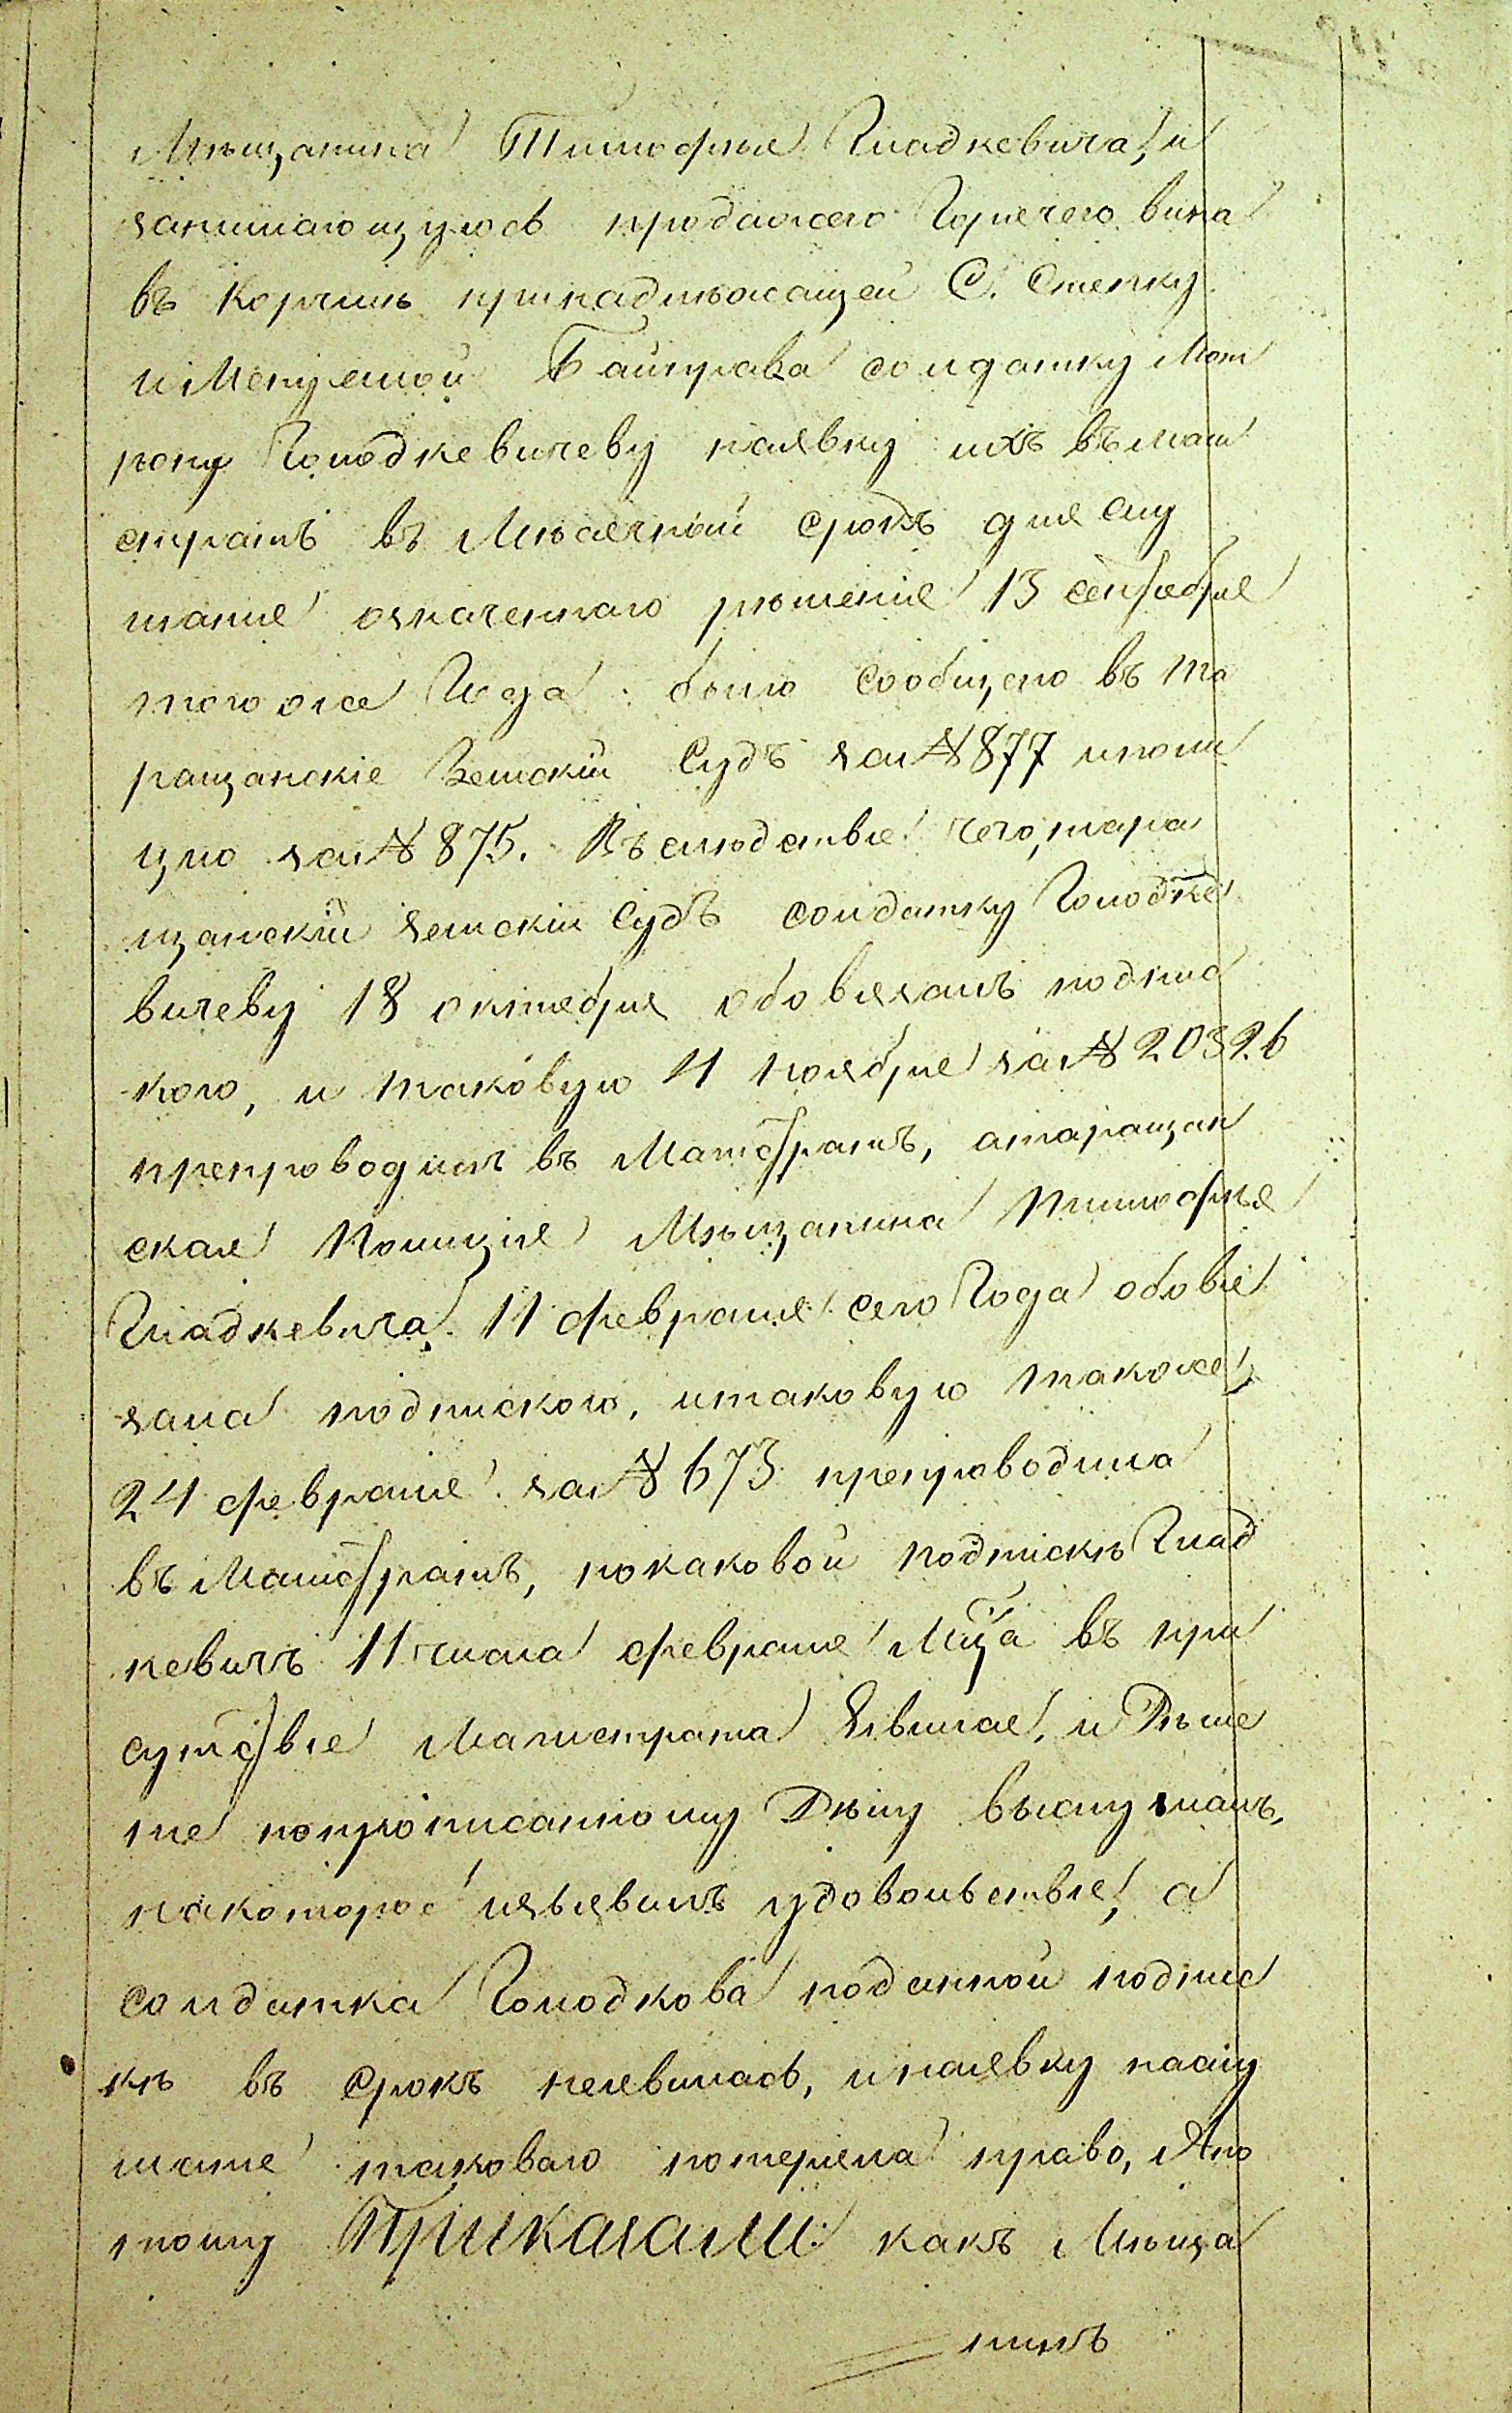 Мѣщанина Тимофея Гладкевича, и
занимающуюсь продажею Горячего вина
въ Корчмѣ принадлѣжащей С. Степку
имѣнуемой Байтрака солдатку Мот
рону Голодкевичеву наявку ихъ въ маги
стратъ въ Мѣсячный срокъ для слу
шания означеннаго рѣшения 13 сентября
того же Года было сообщено въ та
ращанскіе Земскій Судъ за № 877 иполи
цию за № 875. Въ следствие чего, тара
щанскій земскій Судъ солдатку Голодке
вичеву 18 октября обовязалъ подпис
кою, и таковую 4 ноября за № 20326
препроводилъ въ Магистратъ, атаращан
ская Полиция Мѣщанина Тимофѣя
Гладкевича 11 февраля сего Года обовя
зала подпискою, итаковую также
24 февраля за № 673 препроводила
въ Магистратъ, покаковой подпискѣ Глад
кевичъ 11 числа февраля Мца въ при
сутствие Магистрата Явился, и Рѣше
ние попрописанному Дѣлу выслушалъ,
накоторое изъявилъ удовольствие, а
солдатка Голодкова поданной подпис
кѣ въ срокъ неявилась, инаявку наслу
шание таковаго потеряла право, Апо
тому Приказали: какъ Мѣща
нинъ